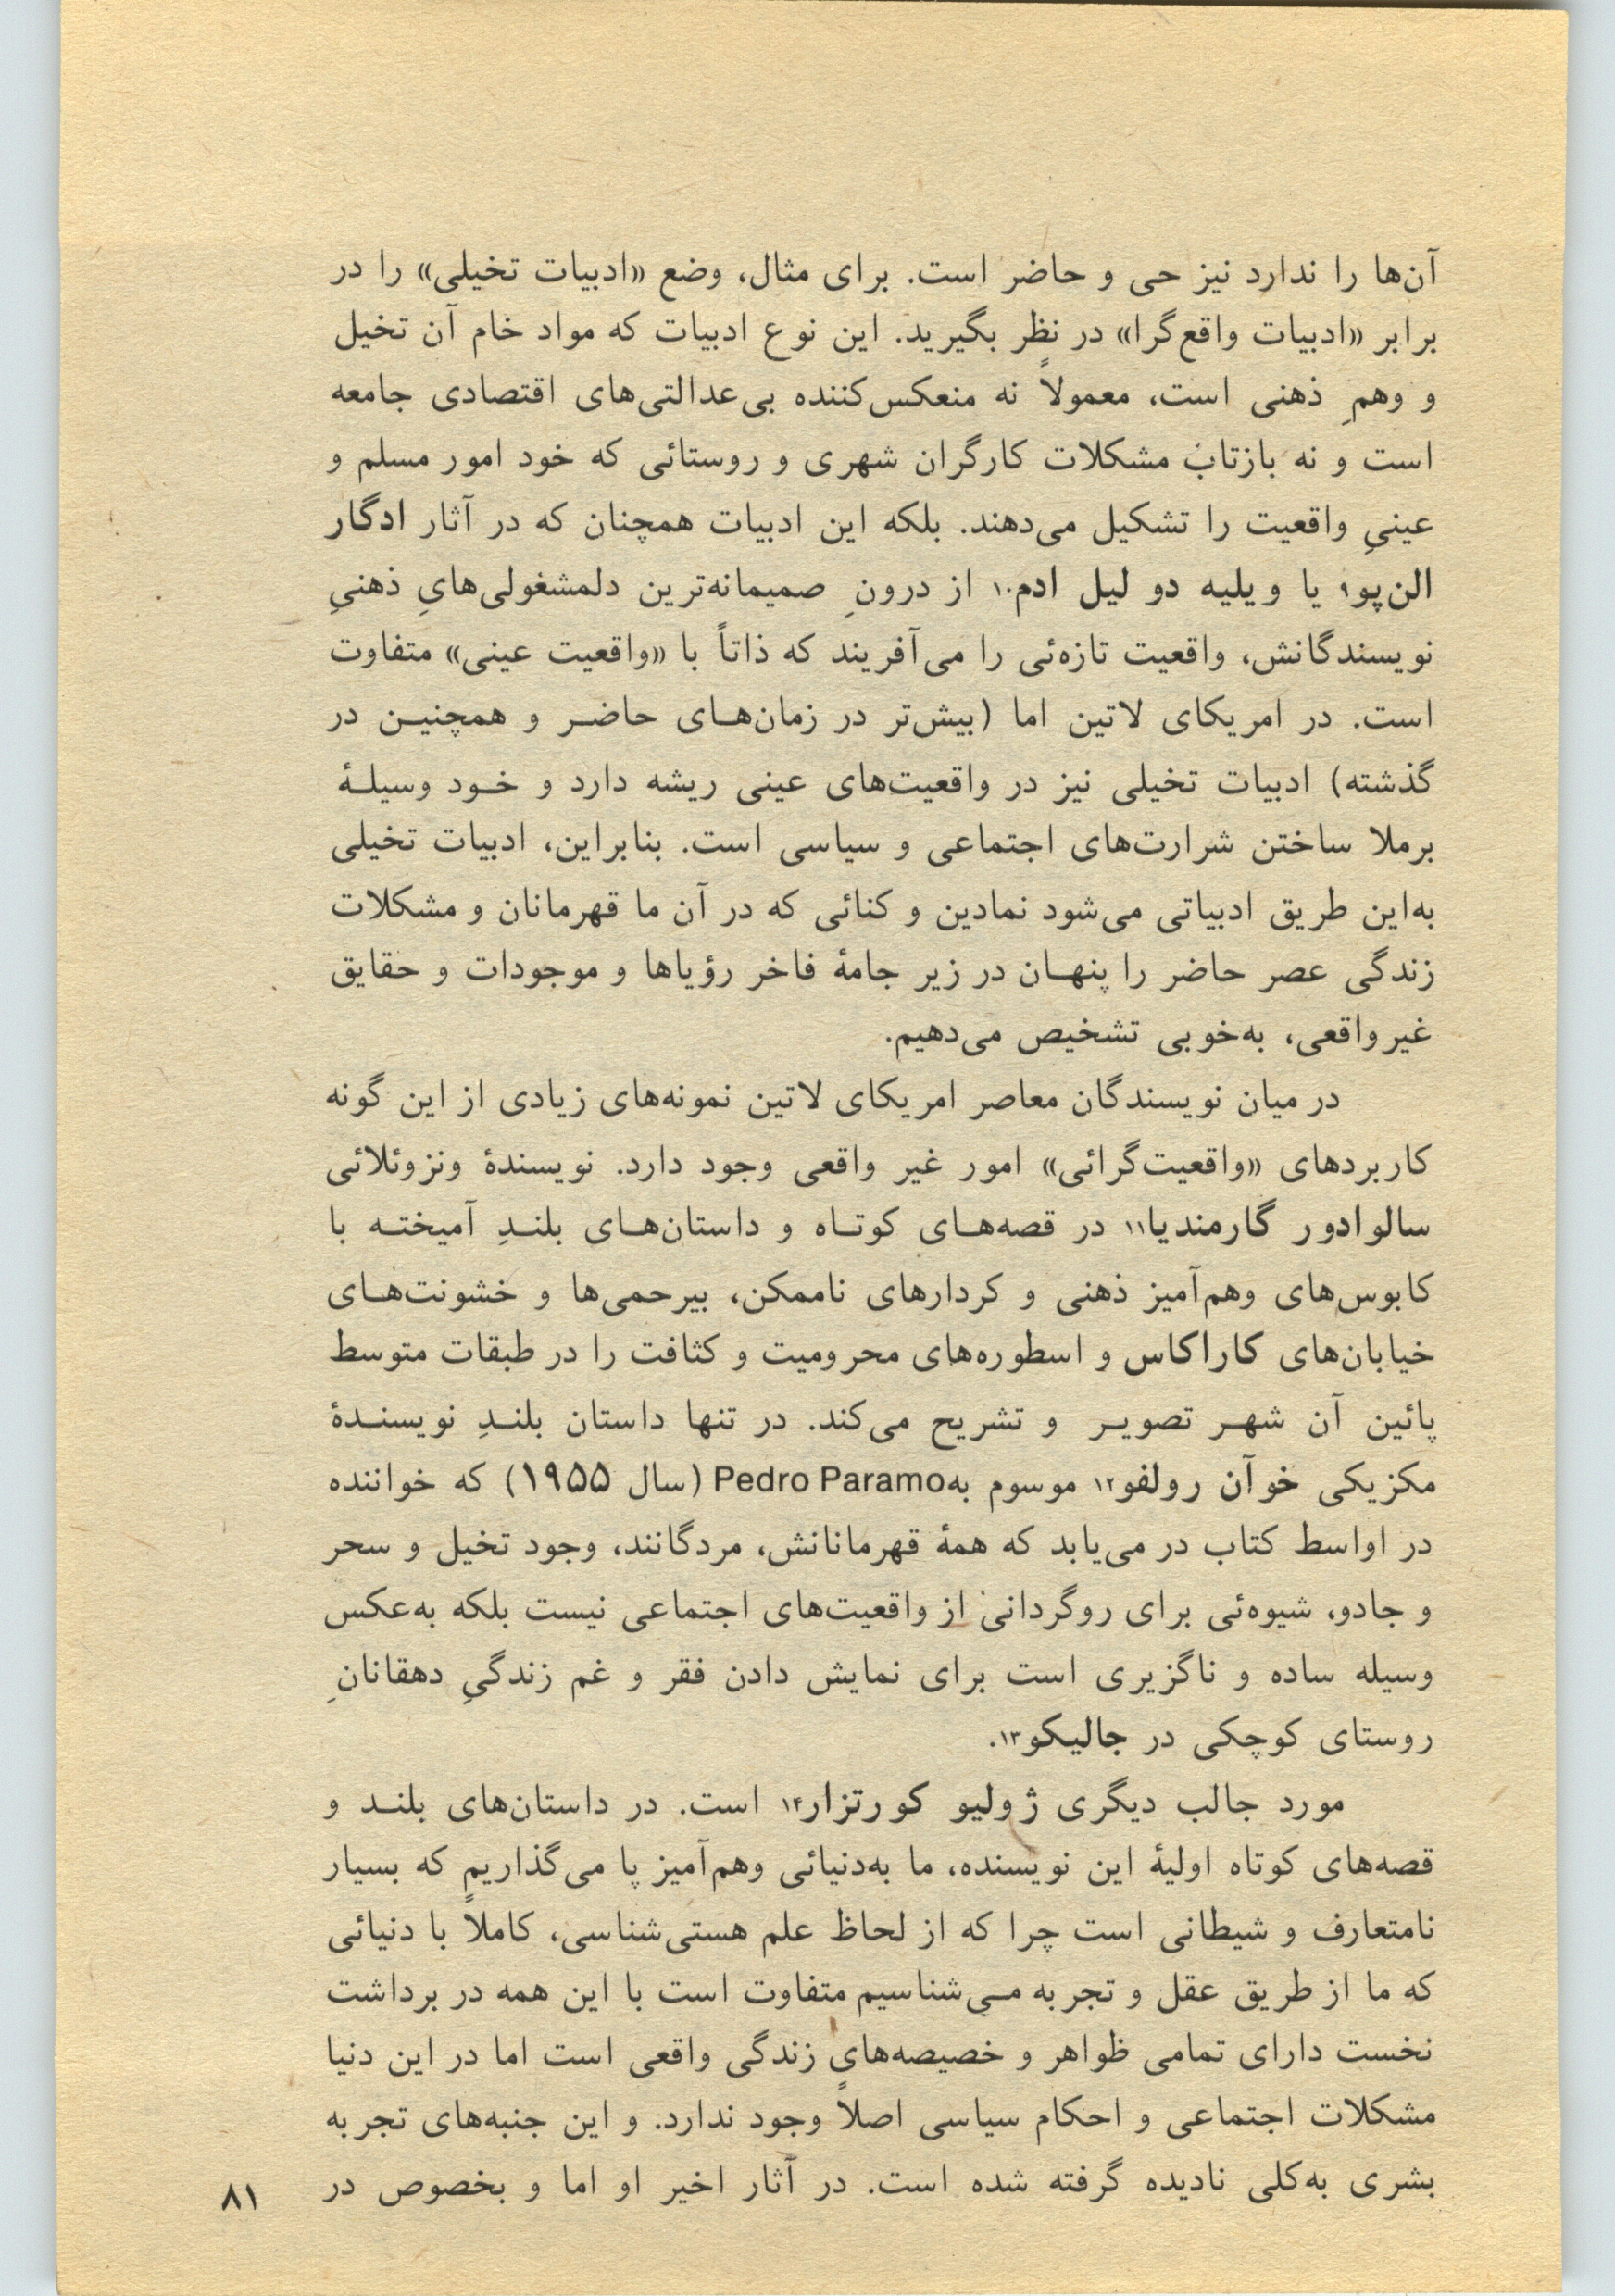 آن‌ها را ندارد نیز حی و حاضر است. برای مثال، وضع «ادبیات تخیلی» را در
برابر «ادبیات واقع‌گرا» در نظر بگیرید. این نوع ادبیات که مواد خام آن تخیل
و وهمِ ذهنی است، معمولاً نه منعکس‌کننده بی‌عدالتی‌های اقتصادی جامعه
است و نه بازتاب مشکلات کارگران شهری و روستائی که خود امور مسلم و
عینیِ واقعیت را تشکیل می‌دهند. بلکه این ادبیات همچنان که در آثار ادگار
الن‌پو۹ یا ویلیه دو لیل ادم۱۰ از درونِ صمیمانه‌ترین دلمشغولی‌هایِ ذهنیِ
نویسندگانش، واقعیت تازه‌ئی را می‌آفریند که ذاتاً با «واقعیت عینی» متفاوت
است. در امریکای لاتین اما (بیش‌تر در زمان‌هـای حاضـر و همچنیـن در
گذشته) ادبیات تخیلی نیز در واقعیت‌های عینی ریشه دارد و خـود وسیلـهٔ
برملا ساختن شرارت‌های اجتماعی و سیاسی است. بنابراین، ادبیات تخیلی
به‌این طریق ادبیاتی می‌شود نمادین و کنائی که در آن ما قهرمانان و مشکلات
زندگی عصر حاضر را پنهـان در زیر جامهٔ فاخر رؤیاها و موجودات و حقایق
غیرواقعی، به‌خوبی تشخیص می‌دهیم.
در میان نویسندگان معاصر امریکای لاتین نمونه‌های زیادی از این گونه
کاربردهای «واقعیت‌گرائی» امور غیر واقعی وجود دارد. نویسندهٔ ونزوئلائی
سالوادور گارمندیا۱۱ در قصه‌هـای کوتـاه و داستان‌هـای بلنـدِ آمیختـه با
کابوس‌های وهم‌آمیز ذهنی و کردارهای ناممکن، بیرحمی‌ها و خشونت‌هـای
خیابان‌های کاراکاس و اسطوره‌های محرومیت و کثافت را در طبقات متوسط
پائین آن شهـر تصویـر و تشریح می‌کند. در تنها داستان بلنـدِ نویسنـدهٔ
مکزیکی خوآن رولفو۱۲ موسوم به‌Pedro Paramo (سال ۱۹۵۵) که خواننده
در اواسط کتاب در می‌یابد که همهٔ قهرمانانش، مردگانند، وجود تخیل و سحر
و جادو، شیوه‌ئی برای روگردانی از واقعیت‌های اجتماعی نیست بلکه به‌عکس
وسیله ساده و ناگزیری است برای نمایش دادن فقر و غم زندگیِ دهقانانِ
روستای کوچکی در جالیکو۱۳.
مورد جالب دیگری ژولیو کورتزار۱۴ است. در داستان‌های بلنـد و
قصه‌های کوتاه اولیهٔ این نویسنده، ما به‌دنیائی وهم‌آمیز پا می‌گذاریم که بسیار
نامتعارف و شیطانی است چرا که از لحاظ علم هستی‌شناسی، کاملاً با دنیائی
که ما از طریق عقل و تجربه مـی‌شناسیم متفاوت است با این همه در برداشت
نخست دارای تمامی ظواهر و خصیصه‌های زندگی واقعی است اما در این دنیا
مشکلات اجتماعی و احکام سیاسی اصلاً وجود ندارد. و این جنبه‌های تجربه
بشری به‌کلی نادیده گرفته شده است. در آثار اخیر او اما و بخصوص در
۸۱